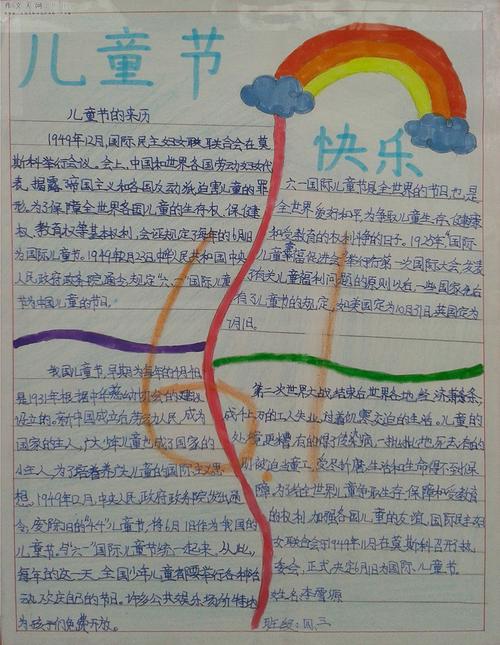 作文大网
儿童节
快乐
儿童节的来历
1949年12月,国际民主妇女联合会在莫
斯科举行会议。会上,中国和世界各国劳动妇女代
表,揭露帝国主义和各国反动派迫害儿童的罪
形,为了保障全世界各国儿童的生存权、保健
权、教育权等基本权利,会议规定每年的6月1日
为国际儿童节。1949年12月23日,中华人民共和国中央
人民政府政务院通令规定"六一"国际儿童
节为中国儿童的节日。
六一国际儿童节是全世界的节日也是
全世界爱好和平为争取儿童生存、健康
和受教育的权利斗争的日子。1925年"国际
儿童幸福促进会"举行第一次国际大会,发表
了有关儿童福利问题的原则以后,一些国家先后
有了儿童节的规定,如美国定为10月31日,英国定为
7月1日。
我国儿童节,早期为每年的4月4日
是1931年根据中华慈幼协会的建议
设立的。新中国成立后劳动人民,成为
国家的主人,广大少年儿童也成了国家的
小主人,为了培养广大儿童的国际主义思
想,1949年12月,中央人民政府政务院发出通
令,废除旧的"4·4"儿童节,将6月1日作为我国的
儿童节,与"六一"国际儿童节统一起来,从此,
每年的这一天,全国少年儿童都要举行各种活
动,欢庆自己的节日。许多公共娱乐场所特地
为孩子们免费开放。
第二次世界大战结束后世界各地,经济萧条,
成千上万的工人失业,过着饥寒交迫的生活。儿童的
处境更糟,有的得了传染病,一批批地死去,有的
则被迫当童工,受尽折磨,生活和生命得不到保
障,为了全世界儿童争取生存、保障和受教育
的权利,加强各国儿童的友谊,国际民主妇
女联合会于1949年11月在莫斯科召开执
委会,正式决定6月1日为国际儿童节。
姓名:李
班级:四、三